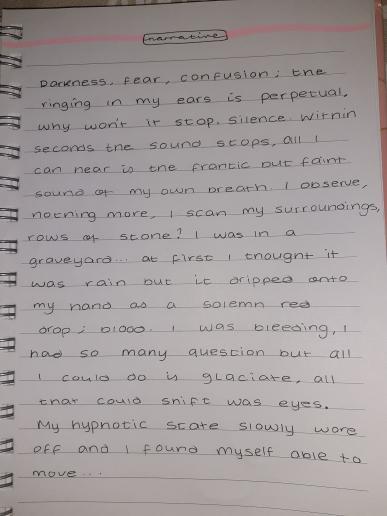 narrative
Darkness, fear, confusion; the
ringing in my ears is perpetual,
why won't it stop. silence. within
seconds the sound stops, all I
can hear is the frantic but faint
sound of my own breath. I observe,
nothing more, I scan my surroundings,
rows of stone? I was in a
graveyard... at first I thought it
was rain but it dripped onto
my hand as a solemn red
drop; blood. I was bleeding, I
had so many question but all
I could do is glaciate, all
that could shift was eyes.
My hypnotic state slowly wore
off and I found myself able to
move...